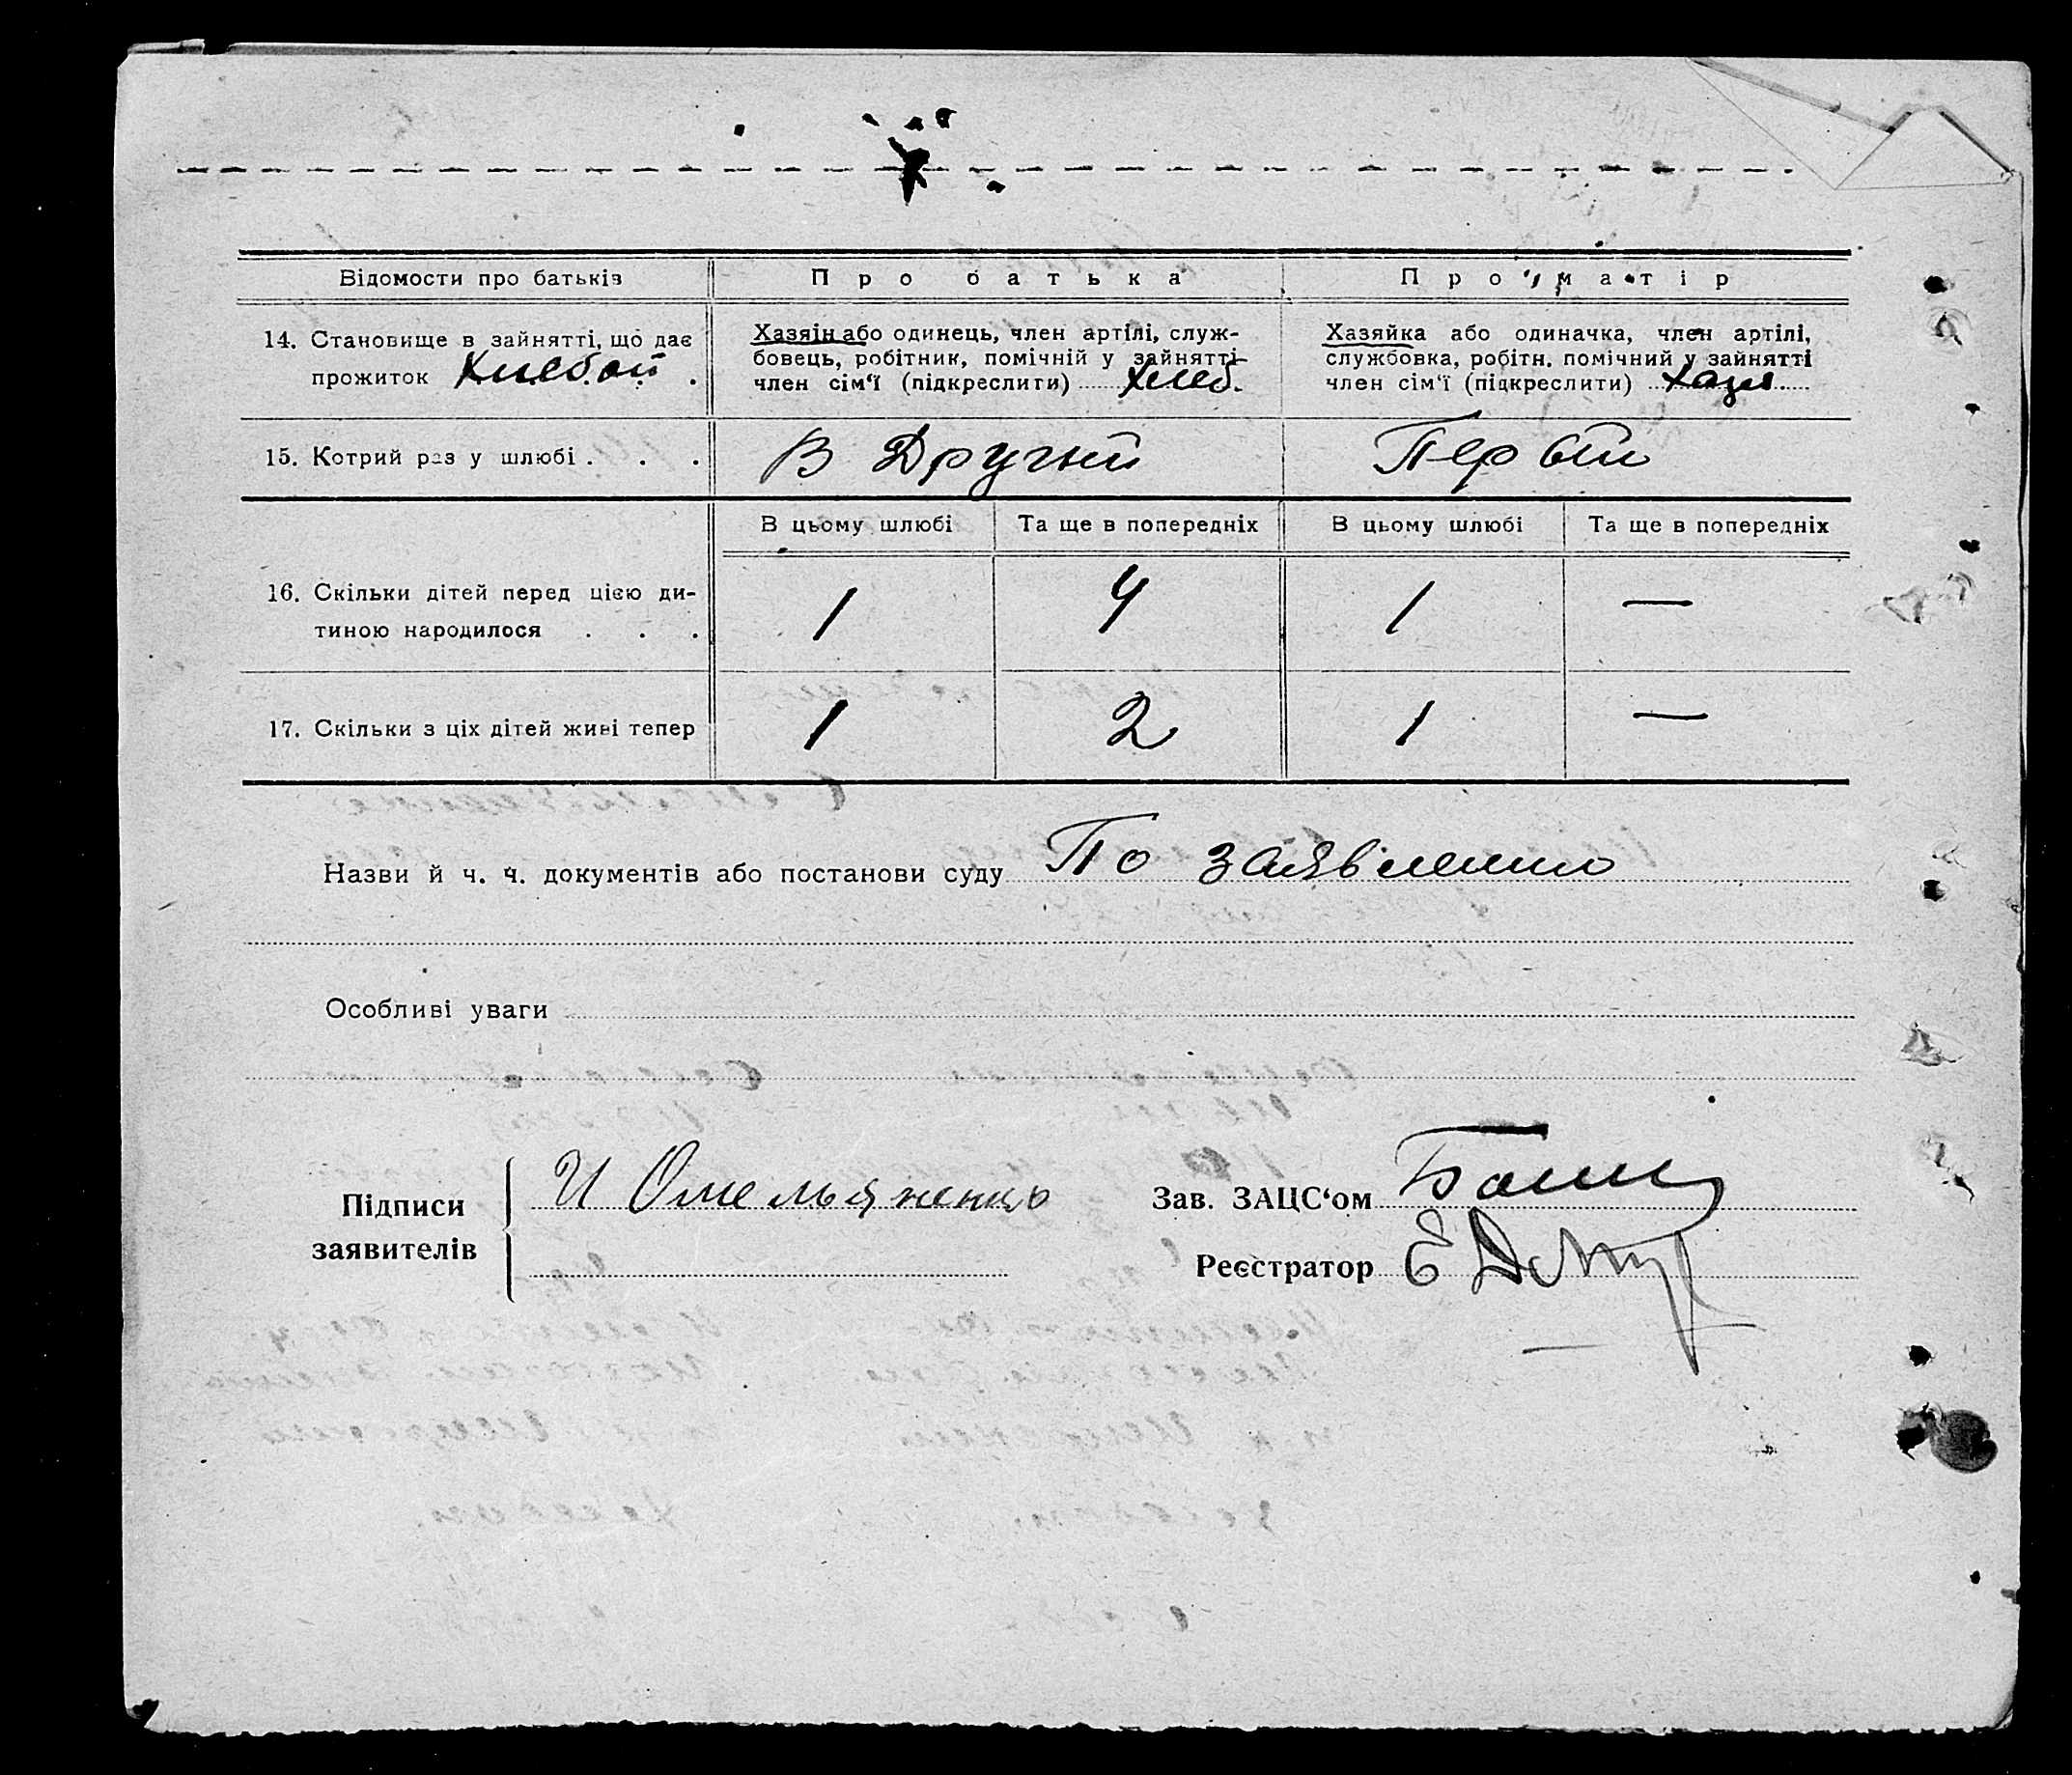 Відомости про батьків
Про батька
Про матір
14. Становище в зайнятті, що дає
прожиток
Хазяін або одинець, член артілі, служ-
бовець, робітник, помічній у зайнятті-
член сім'ї (підкреслити) хлеб.
Хазяйка або одиначка, член артілі,
службовка, робітн. помічний у зайнятті
член сім'ї (підкреслити)
15. Котрий раз у шлюбі . . .
В Другий
Первый
В цьому шлюбі
Та ще в попередніх
В цьому шлюбі
Та ще в попередніх
16. Скільки дітей перед цією ди-
тиною народилося . . .
1
4
1
—
17. Скільки з ціх дітей живі тепер
1
2
1
—
Назви й ч. ч. документів або постанови суду По заявлению
Особливі уваги
Підписи
заявителів
И Омельяненко
Зав. ЗАЦС'ом
Реєстратор